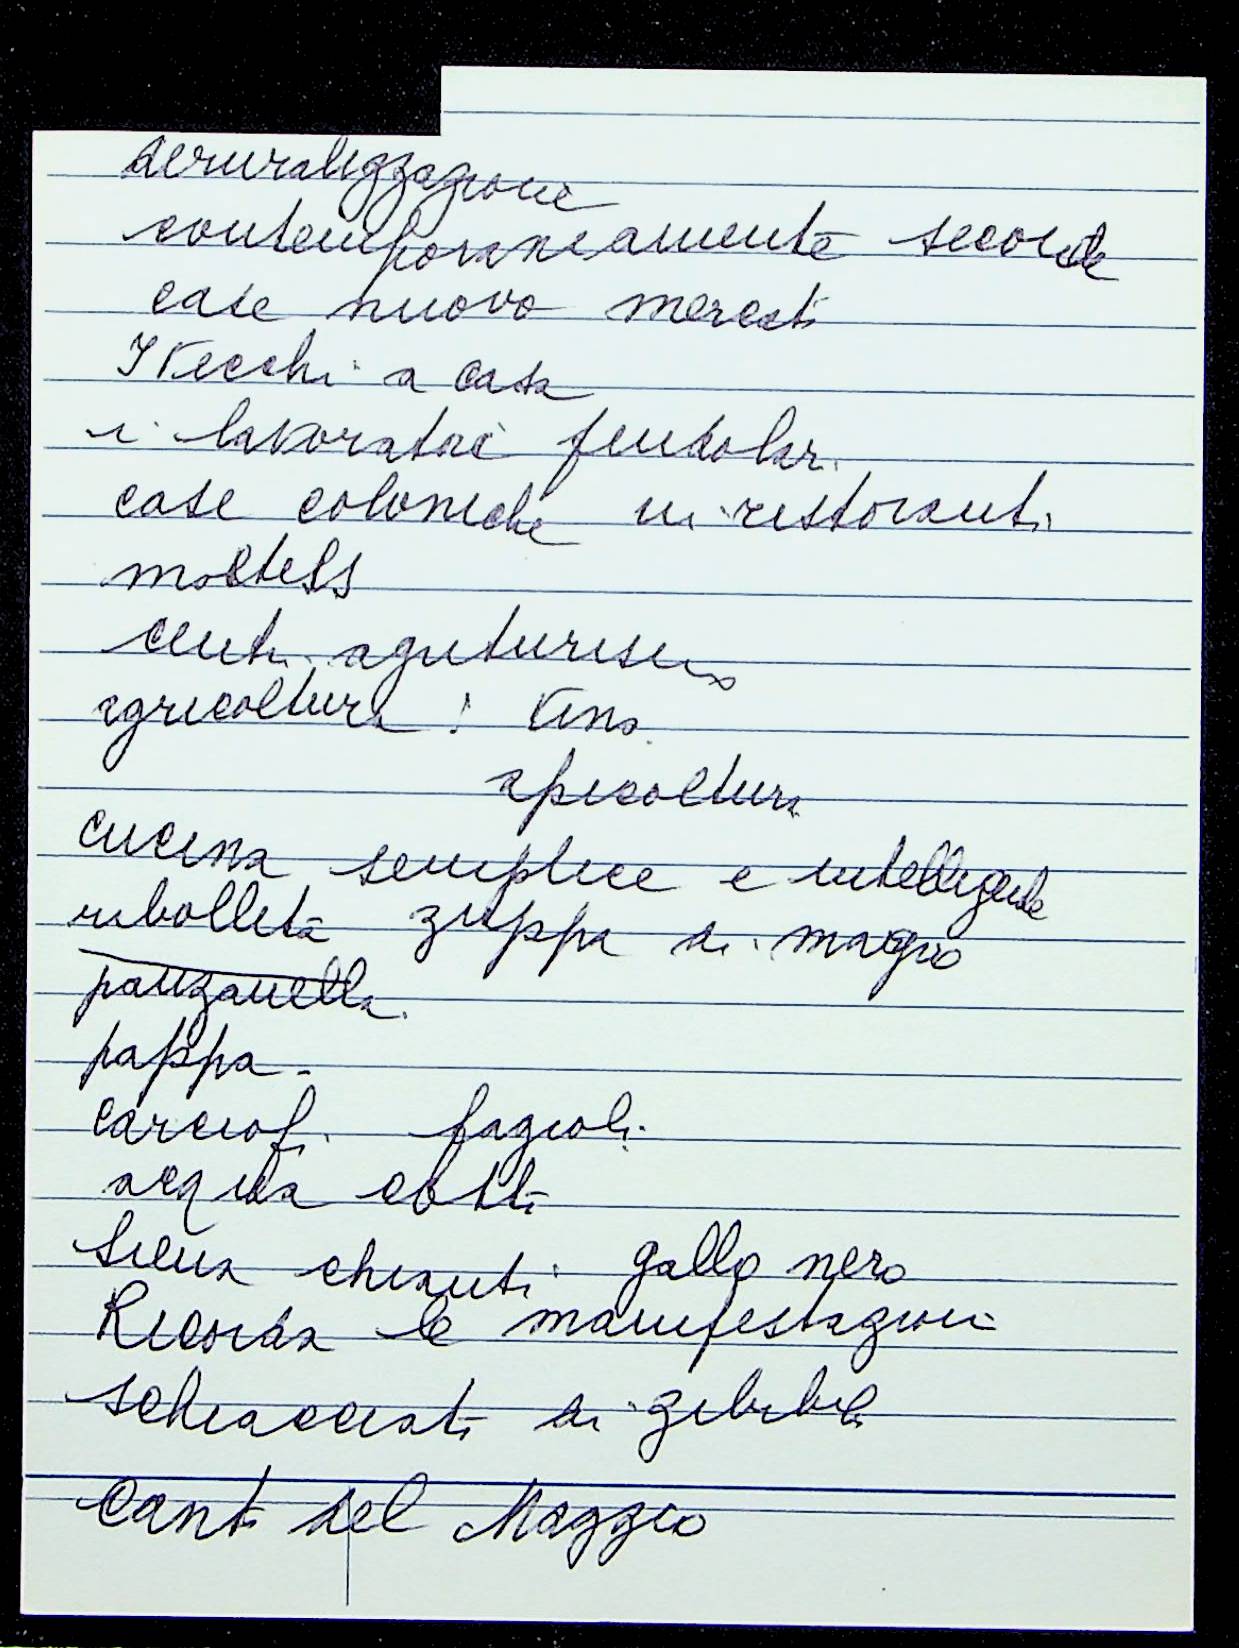 deruralizzazione
contemporaneamente seconde
case nuovo mercati
I Vecchi a casa
i lavoratori pendolari
case coloniche in ristoranti
moetels
centri agriturism
agricoltura : Vino
apicoltura
cucina semplice e intelligente
ribollita zuppa di magro
panzanella
pappa -
carciofi fagioli
acqua cotta
Siena chianti gallo nero
Ricorda le manifestazioni
schiacciata di zibibbo
Canti del Maggio